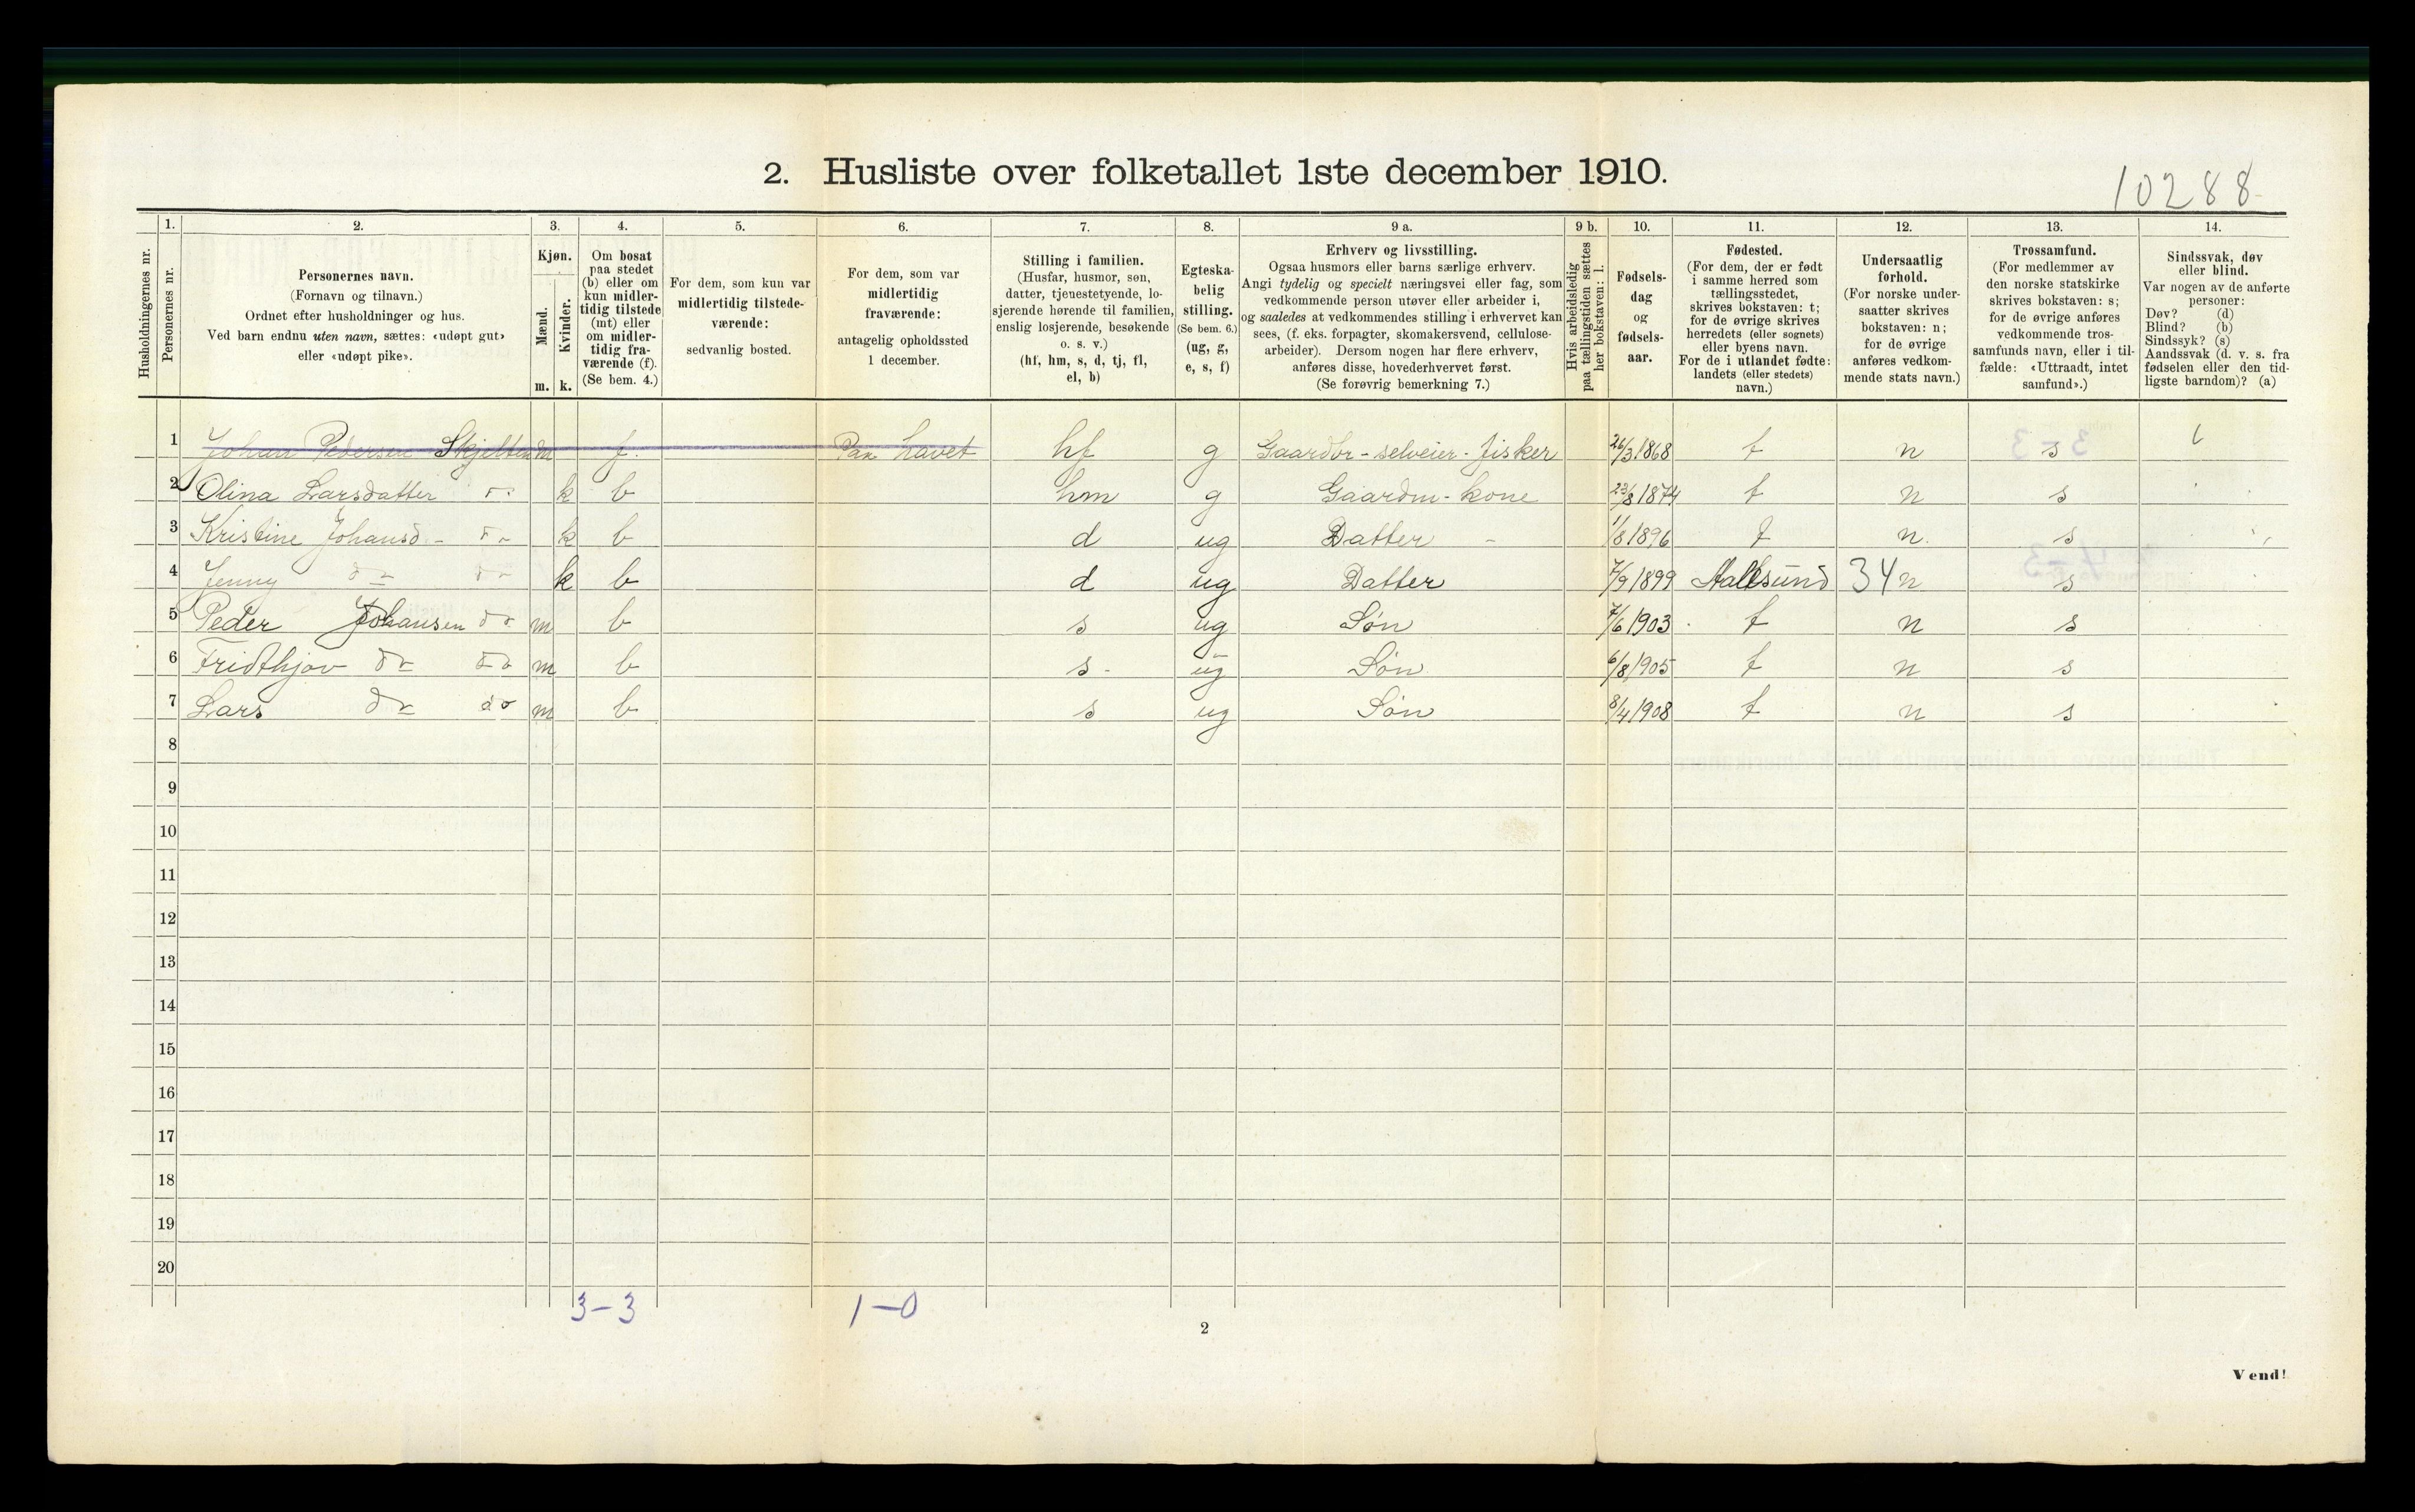 2. Husliste over folketallet 1ste december 1910.
10288
1. 2. 3. 4. 5. 6. 7. 8. 9 a. 9 b. 10. 11. 12. 13. 14.
Husholdningernes nr.
Personernes nr.
Personernes navn.
(Fornavn og tilnavn.)
Ordnet efter husholdninger og hus.
Ved barn endnu uten navn, sættes: «udøpt gut»
eller «udøpt pike».
Kjøn.
Mænd.
Kvinder.
m. k.
Om bosat
paa stedet
(b) eller om
kun midler-
tidig tilstede
(mt) eller
om midler-
tidig fra-
værende (f).
(Se bem. 4.)
For dem, som kun var
midlertidig tilstede-
værende:
sedvanlig bosted.
For dem, som var
midlertidig
fraværende:
antagelig opholdssted
1 december.
Stilling i familien.
(Husfar, husmor, søn,
datter, tjenestetyende, lo-
sjerende hørende til familien,
enslig losjerende, besøkende
o. s. v.)
(hf, hm, s, d, tj, fl,
el, b)
Egteska-
belig
stilling.
(Se bem. 6.)
(ug, g,
e, s, f)
Erhverv og livsstilling.
Ogsaa husmors eller barns særlige erhverv.
Angi tydelig og specielt næringsvei eller fag, som
vedkommende person utøver eller arbeider i,
og saaledes at vedkommendes stilling i erhvervet kan
sees, (f. eks. forpagter, skomakersvend, cellulose-
arbeider). Dersom nogen har flere erhverv,
anføres disse, hovederhvervet først.
(Se forøvrig bemerkning 7.)
Hvis arbeidsledig
paa tællingstiden sættes
her bokstaven: l.
Fødsels-
dag
og
fødsels-
aar.
Fødested.
(For dem, der er født
i samme herred som
tællingsstedet,
skrives bokstaven: t;
for de øvrige skrives
herredets (eller sognets)
eller byens navn.
For de i utlandet fødte:
landets (eller stedets)
navn.)
Undersaatlig
forhold.
(For norske under-
saatter skrives
bokstaven: n;
for de øvrige
anføres vedkom-
mende stats navn.)
Trossamfund.
(For medlemmer av
den norske statskirke
skrives bokstaven: s;
for de øvrige anføres
vedkommende tros-
samfunds navn, eller i til-
fælde: «Uttraadt, intet
samfund».)
Sindssvak, døv
eller blind.
Var nogen av de anførte
personer:
Døv? (d)
Blind? (b)
Sindssyk? (s)
Aandssvak (d. v. s. fra
fødselen eller den tid-
ligste barndom)? (a)
1 Johan Pedersen Skjelten m f. Paa havet hf g Gaardbr - selveier - fisker 26/3 1868 t n s
2 Olina Larsdatter do k b hm g Gaardm - kone 23/8 1874 t n s
3 Kristine Johansd - do k b d ug Datter - 1/8 1896 t n. s
4 Jenny do do k b d ug Datter 7/9 1899 Aalesund 34 n s
5 Peder Johansen do m b s ug Søn 7/6 1903 t n s
6 Fridthjov do do m b s - ug Søn 6/8 1905 t n s
7 Lars do do m b s ug Søn 8/4 1908 t n s
8
9
10
11
12
13
14
15
16
17
18
19
20
3-3 1-0
2
Vend!